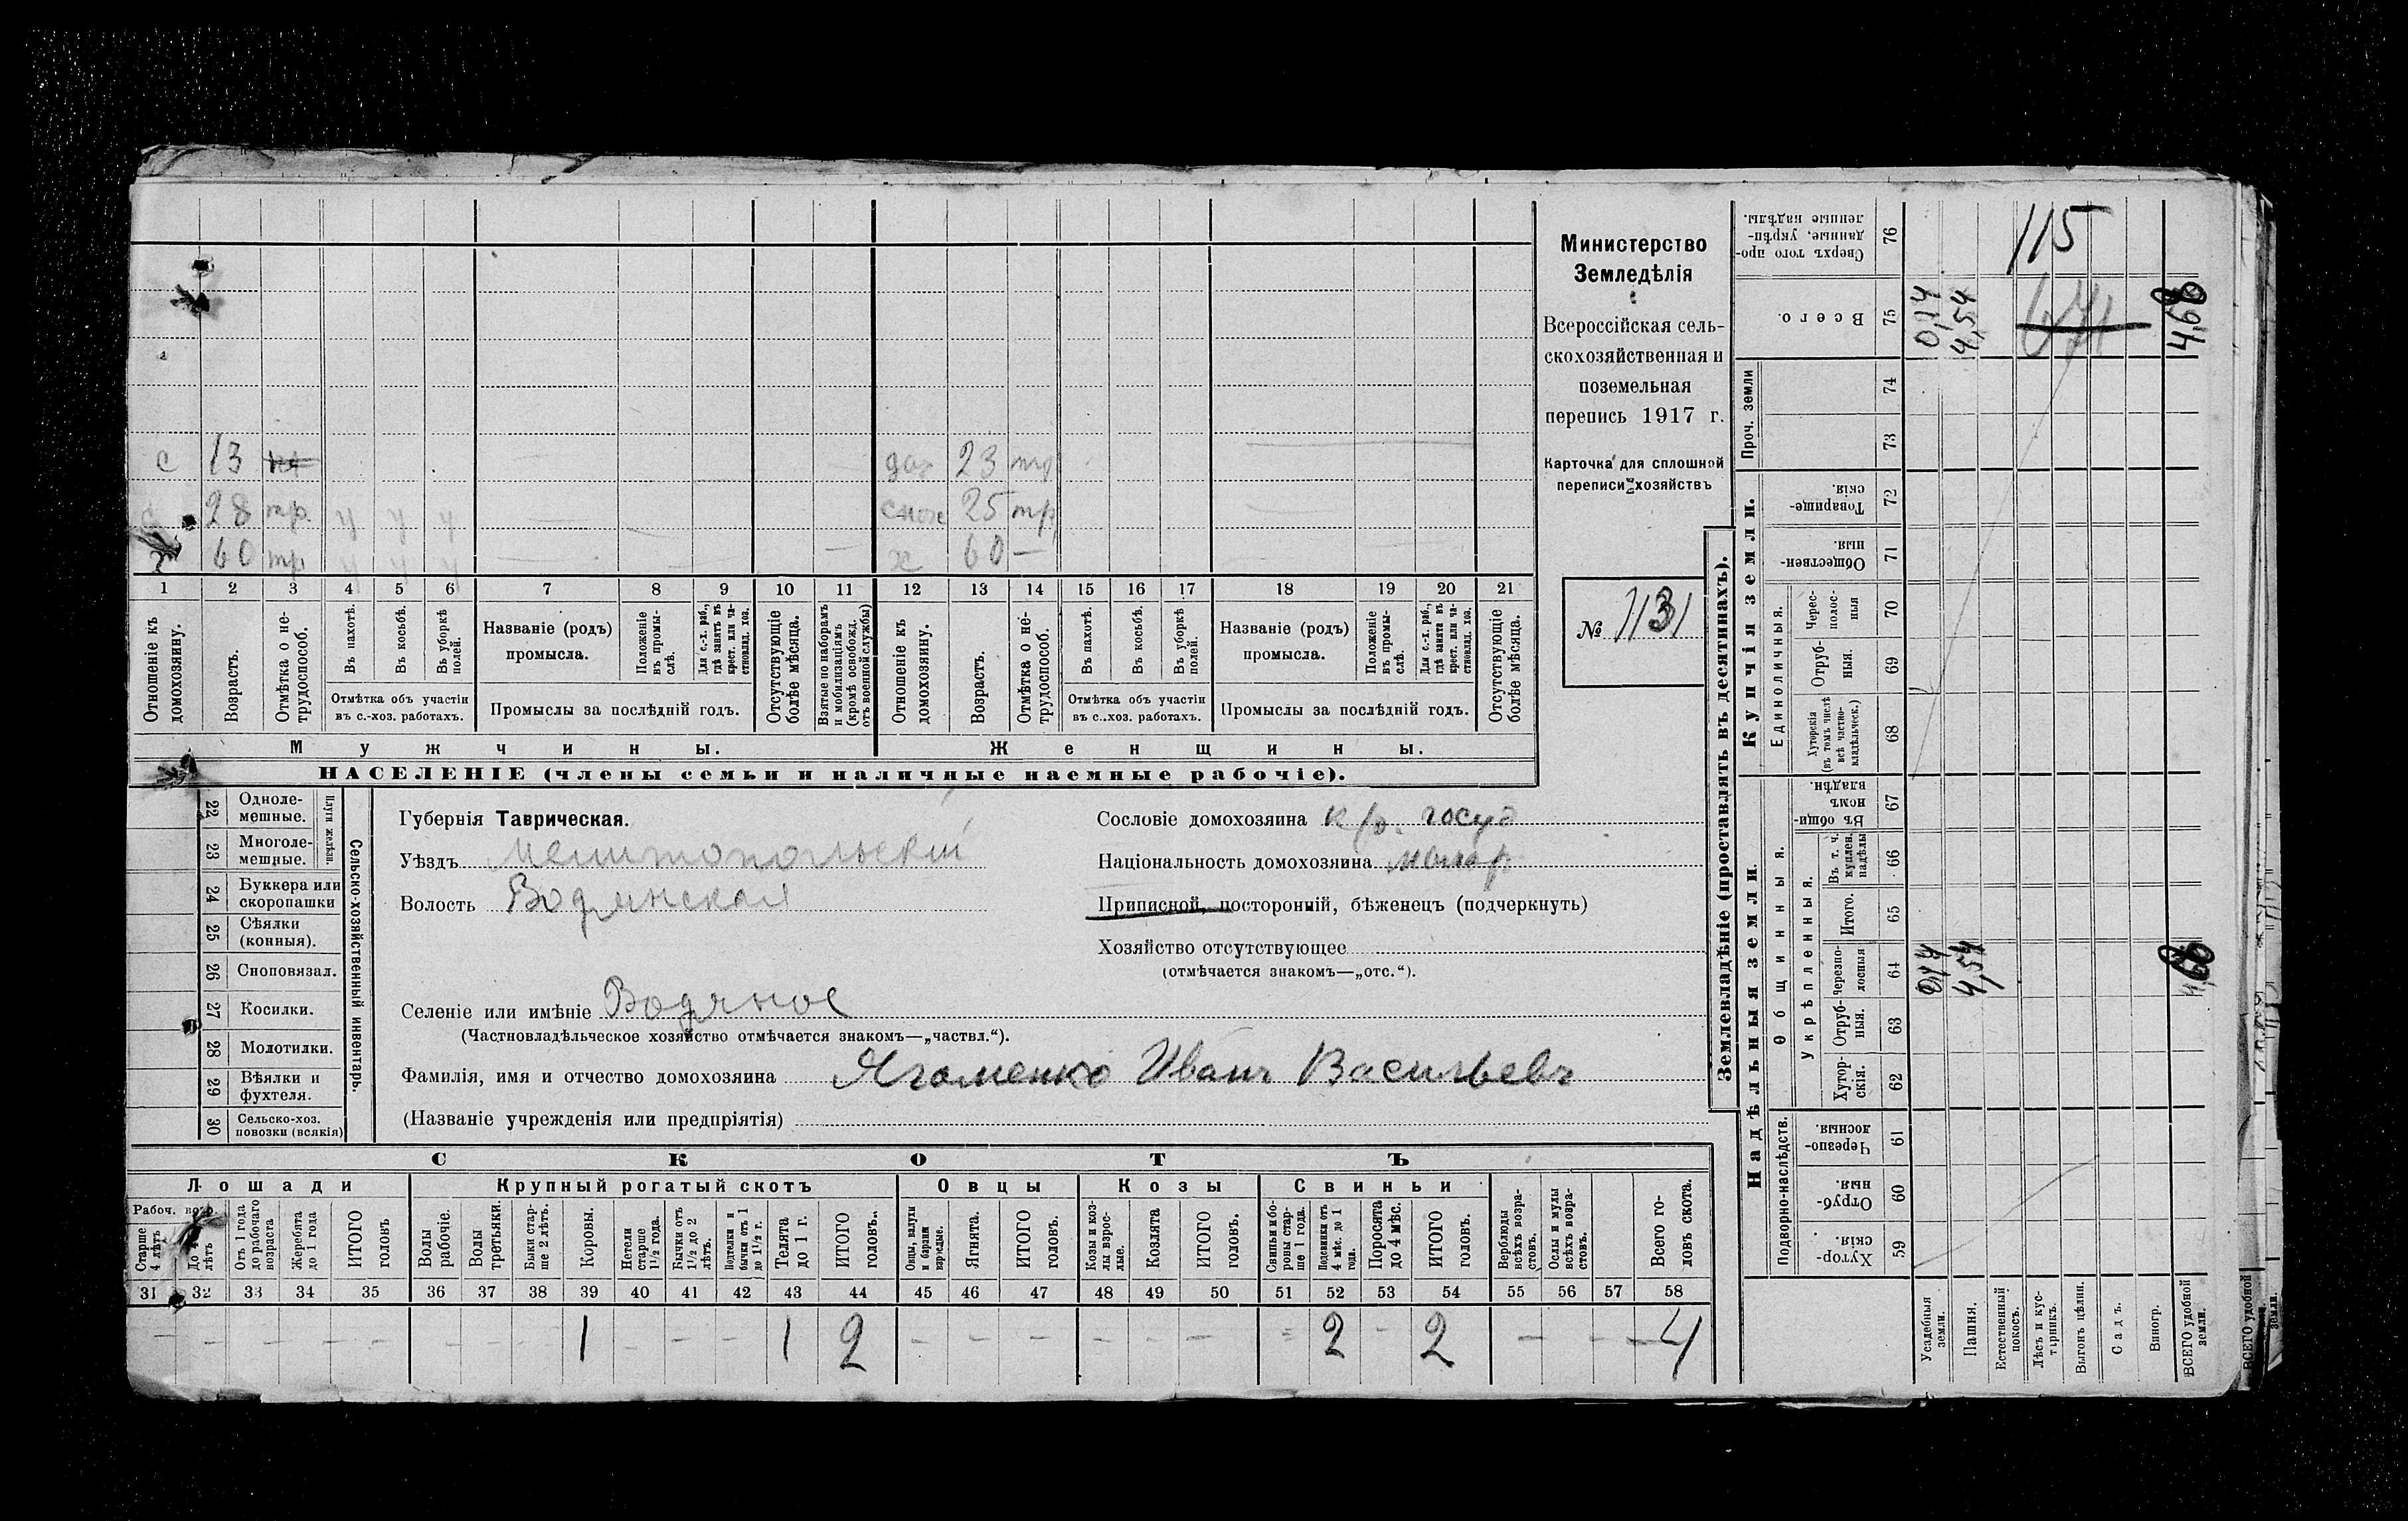 115
с 13 дог 23 тр
с 28 тр. у у у снох 25 тр
х 60 тр. у у у х 60 —
1 2 3 4 5 6 7 8 9 10 11 12 13 14 15 16 17 18 19 20 21
Отношеніе къ домохозяину.
Возрастъ.
Отмѣтка о не-
трудоспособ.
Въ пахотѣ.
Въ косьбѣ.
Въ уборкѣ полей.
Отмѣтка объ участіи
въ с.-хоз. работахъ.
Названіе (родъ)
промысла.
Положеніе въ промы-
слѣ.
Для с.-х. раб., гдѣ занятъ въ крест. или ча-
стновлад. хоз.
Промыслы за послѣдній годъ.
Отсутствующіе болѣе мѣсяца.
Взятые по наборамъ и мобилизаціямъ (кромѣ освобожд. отъ военной службы)
Отношеніе къ домохозяину.
Возрастъ.
Отмѣтка о не-
трудоспособ.
Въ пахотѣ.
Въ косьбѣ.
Въ уборкѣ полей.
Отмѣтка объ участіи
въ с..хоз. работахъ.
Названіе (родъ)
промысла.
Положеніе въ промы-
слѣ.
Для с.-х. раб., гдѣ занята въ крест. или ча-
стновлад. хоз.
Промыслы за послѣдній годъ.
Отсутствующіе болѣе мѣсяца.
Мужчины.
Женщины.
НАСЕЛЕНІЕ (члены семьи и наличные наемные рабочіе).
Министерство
Земледѣлія
Всероссійская сель-
скохозяйственная и
поземельная
перепись 1917 г.
Карточка для сплошной
переписи хозяйствъ
№ 1131
22 Одноле-
мешные.
23 Многоле-
мешные.
Плуги желѣзн.
24 Буккера или
скоропашки
25 Сѣялки
(конныя).
26 Сноповязал.
27 Косилки.
28 Молотилки.
29 Вѣялки и
фухтеля.
30 Сельско-хоз.
повозки (всякія)
Сельско-хозяйственный инвентарь.
Губернія Таврическая.
Уѣздъ Мелитопольскій
Волость Водянская
Селеніе или имѣніе Водяное
(Частновладѣльческое хозяйство отмѣчается знакомъ—„частвл.“).
Фамилія, имя и отчество домохозяина Ягоменко Иванъ Васильевъ
(Названіе учрежденія или предпріятія)
Сословіе домохозяина кр. госуд
Національность домохозяина малор.
Приписной, посторонній, бѣженецъ (подчеркнуть)
Хозяйство отсутствующее
(отмѣчается знакомъ—„отс.“).
СКОТЪ
Лошади
Крупный рогатый скотъ
Овцы
Козы
Свиньи
Рабоч. возр.
Старше 4 лѣтъ
До 4 лѣтъ
Отъ 1 года до рабочаго возраста
Жеребята до 1 года
ИТОГО головъ
Волы рабочіе.
Волы третьяки.
Быки стар-
ше 2 лѣтъ.
Коровы.
Нетели старше 1½ года.
Бычки отъ 1½ до 2 лѣтъ.
Подтелки и бычки отъ 1 до 1½ г.
Телята до 1 г.
ИТОГО головъ.
Овцы, валухи и бараны взрослые.
Ягнята.
ИТОГО головъ.
Козы и коз-
лы взрос-
лые.
Козлята
ИТОГО головъ.
Свиньи и бо-
ровы стар-
ше 1 года.
Подсвинки отъ 4 мѣс. до 1 года.
Поросята до 4 мѣс.
ИТОГО головъ.
Верблюды всѣхъ возра-
стовъ.
Ослы и мулы всѣхъ возра-
стовъ.
Всего го-
ловъ скота.
31 32 33 34 35 36 37 38 39 40 41 42 43 44 45 46 47 48 49 50 51 52 53 54 55 56 57 58
— — — — — — — — 1 — — — 1 2 — — — — — — — 2 — 2 — — — 4
Землевладѣніе (проставлять въ десятинахъ).
Купчія земли.
Надѣльныя земли.
Единоличныя.
Общинныя.
Укрѣпленныя.
Подворно-наслѣдств.
Сверхъ того про-
данные, укрѣп-
ленные надѣлы. 76
Всего. 75 0,14 4,54 671 4,68
Проч. земли 74 73
Товарище-
скія. 72
Обществен-
ныя. 71
Черес-
полос-
ныя 70
Отруб-
ныя. 69
Хуторскія (въ томъ числѣ всѣ частно-
владѣльческ.) 68
Въ общи-
номъ владѣн. 67
Въ т. ч. куплен. надѣлы 66
Итого. 65
Черезпо-
лосныя 64 0,14 4,54 4,68
Отруб-
ныя. 63
Хутор-
скія. 62
Черезпо-
лосныя 61
Отруб-
ныя. 60
Хутор-
скія. 59
Усадебныя земли.
Пашня.
Естественный покосъ.
Лѣсъ и кус-
тарникъ.
Выгонъ цѣлин.
Садъ.
Виногр.
ВСЕГО удобной земли.
ВСЕГО удобной земли.